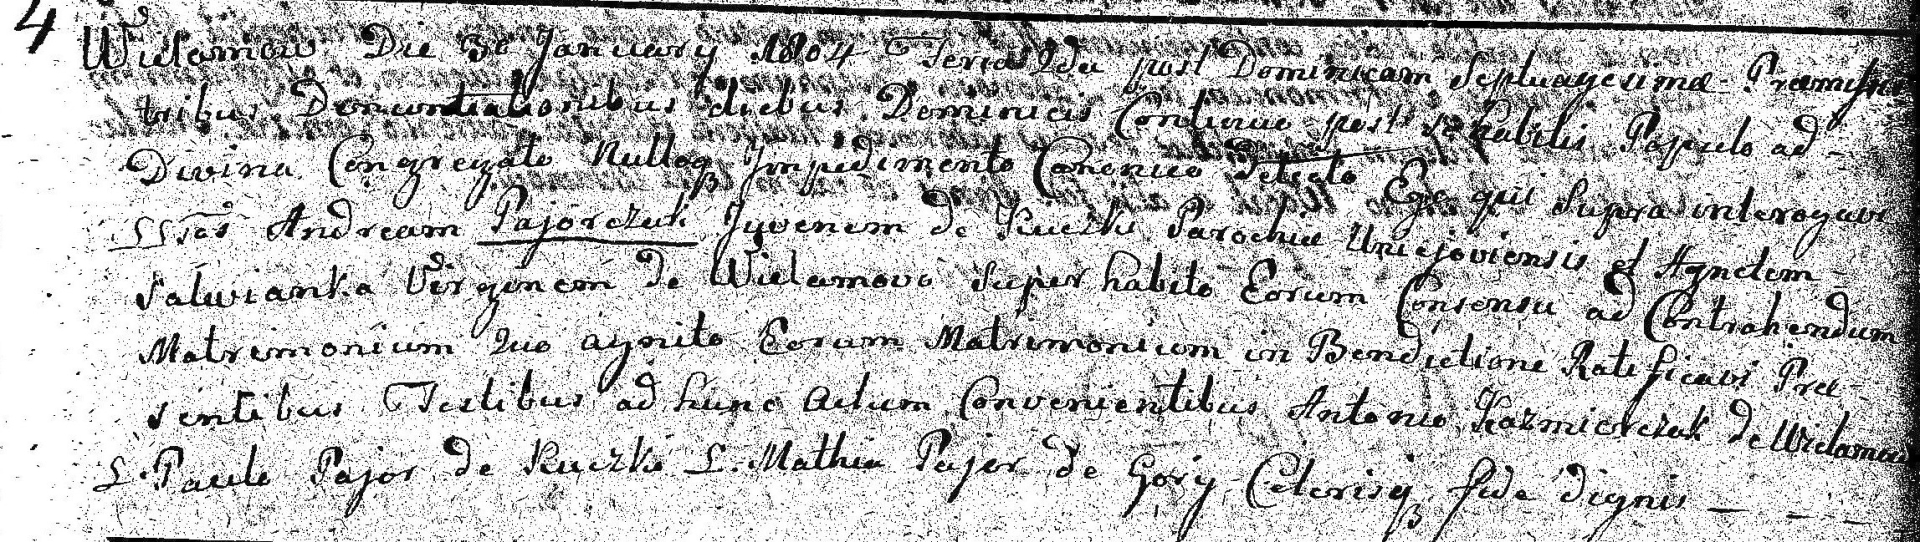 4 Wielamow Die 30 January 1804 Feria 2da post Dominicam Septuagesimæ Præmissis
tribus Denuntiationibus diebus Dominicis Continuo post se habitis Populo ad
Divina Congregato Nulloq Impedimento Canonico Detecto Ego qui Supra interogavi
Andream Pajorczuk Juvenem de Kuczki Parochiæ Uniejoviensis et Agnetem
Salwianka Virginem de Wielamowo Super habito Eorum Consensu ad Contrahendum
Matrimonium Quo agnito Eorum Matrimonium in Bendictione Ratificavi Præ-
sentibus Testibus ad hunc Actum Convenientibus Antonio Kazmierczak de Wielamow
L. Paulo Pajor de Kuczki L. Mathia Pajor de Gory Ceterisq fide dignis